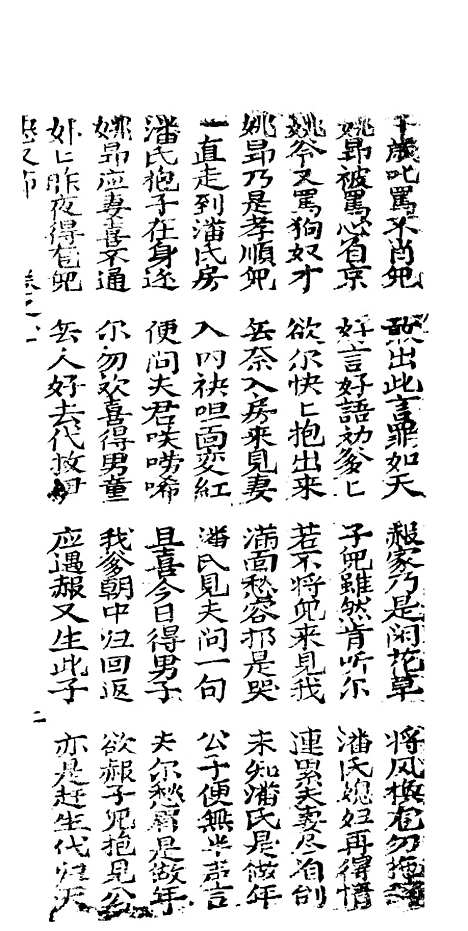 歲叱罵不肖兒 敢出此言罪如天 赧家乃是闲花草 将风
姚昂被罵心省京 好言好語劝爹匕 子兒雖然肯听尔 潘氏媳妇再得情
姚爷又罵狗奴才 欲尔快匕抱出来 若不将兒来見我 連累夫妻尽省刣
姚昂乃是孝順兒 無奈入房来見妻 滿面愁容那是哭 未知潘氏是做年
一直走到潘氏房 入门袂呾面变紅 潘氏見夫问一句 公子便無半声言
潘氏抱子在身边 便问夫君咲唠唏 且喜今日得男子 夫尔愁眉是做年
姚昂应妻喜不通 尔勿欢喜得男童 我爹朝中归回返 欲赧子兒抱見公
奴匕昨夜得苞兒 無人好去代救 应遇赧又生此子 亦是赶生代归天
二